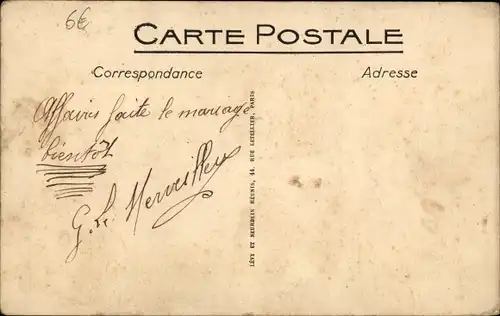 6€
CARTE POSTALE
Correspondance
Adresse
Affaires faite le mariage
bientôt
G. Le
LÉVY ET NEURDEIN RÉUNIS, 44, RUE LETELLIER, PARIS